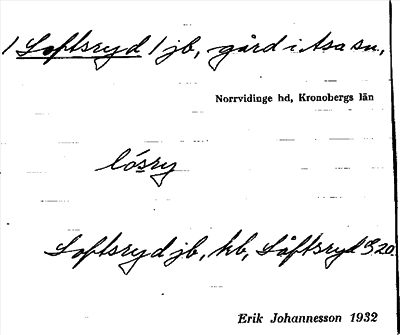 / Loftsryd / jb, gård i Asa sn,
Norrvidinge hd, Kronobergs län
lósry
Loftsryd jb, kb, Låftsryd G20.
Erik Johannesson 1932